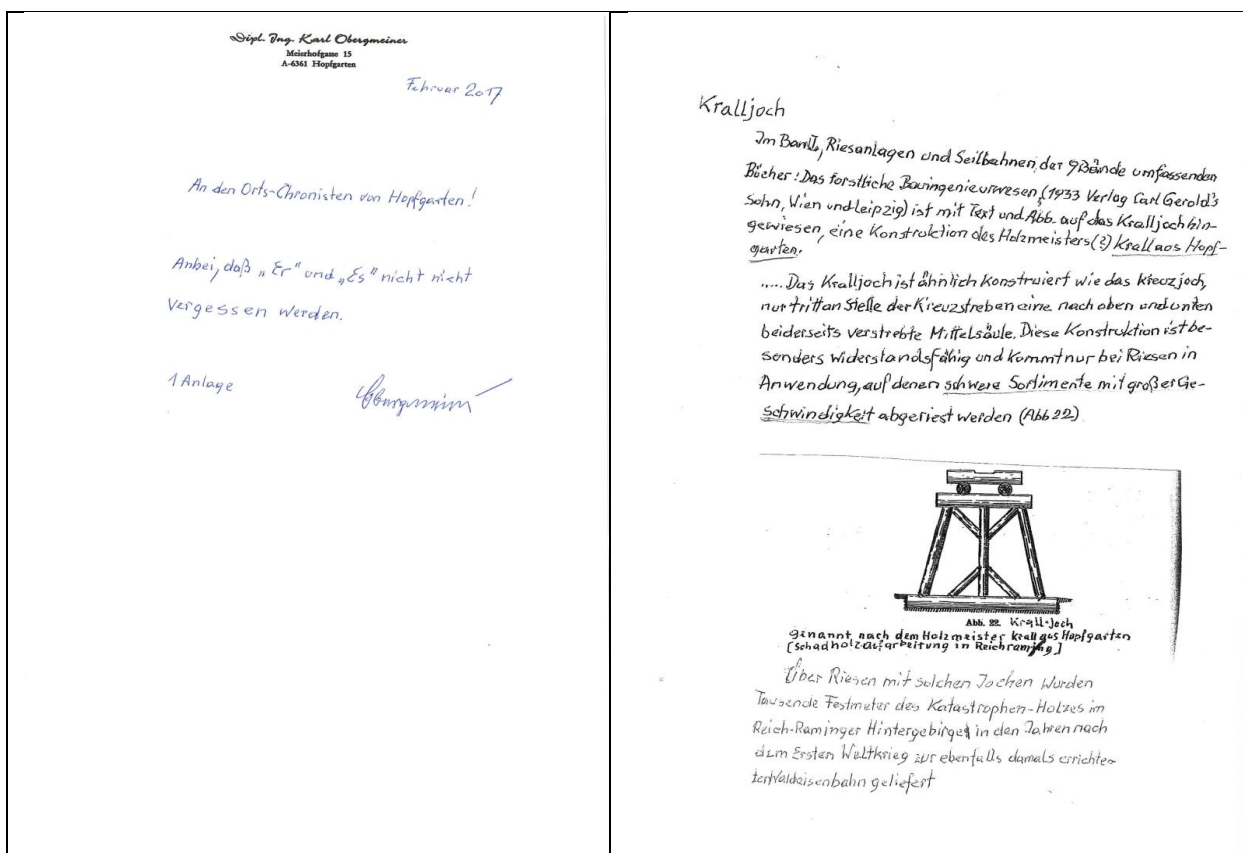 Dipl. Ing. Karl Obergmeiner
Meierhofgasse 15
A-6361 Hopfgarten
Februar 2017
An den Orts-Chronisten von Hopfgarten!
Anbei, daß „Er" und „Es" nicht nicht
vergessen werden.
1 Anlage
Obergmeiner
Kralljoch
Im Band I, Riesanlagen und Seilbahnen, der 9 Bände umfassenden
Bücher: Das forstliche Bauingenieurwesen, (1933 Verlag Carl Gerold's
Sohn, Wien und Leipzig) ist mit Text und Abb. auf das Kralljoch hin-
gewiesen, eine Konstruktion des Holzmeisters(?) Krall aus Hopf-
garten.
..... Das Kralljoch ist ähnlich konstruiert wie das Kreuzjoch,
nur tritt an Stelle der Kreuzstreben eine nach oben und unten
beiderseits verstrebte Mittelsäule. Diese Konstruktion ist be-
sonders widerstandsfähig und kommt nur bei Riesen in
Anwendung, auf denen schwere Sortimente mit großer Ge-
schwindigkeit abgeriest werden (Abb 22)
Abb. 22. Krall-Joch
genannt nach dem Holzmeister Krall aus Hopfgarten
[Schadholz-Aufarbeitung in Reichraming]
Über Riesen mit solchen Jochen wurden
Tausende Festmeter des Katastrophen-Holzes im
Reich-Raminger Hintergebirge in den Jahren nach
dem Ersten Weltkrieg zur ebenfalls damals errichte-
ten Waldeisenbahn geliefert